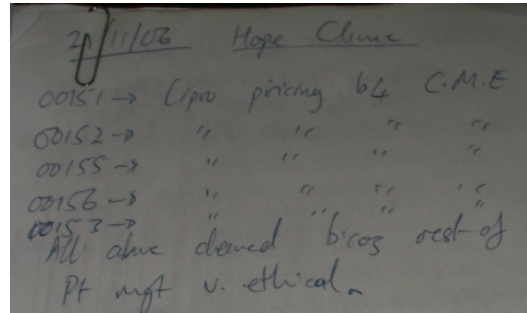 21/11/06 Hope Clinic
00151 → Cipro pricing b4 C.M.E
00152 → " " " "
00155 → " " " "
00156 → " " " "
00153 → " " " "
All above cleared b'coz rest of
Pt mgt v. ethical.